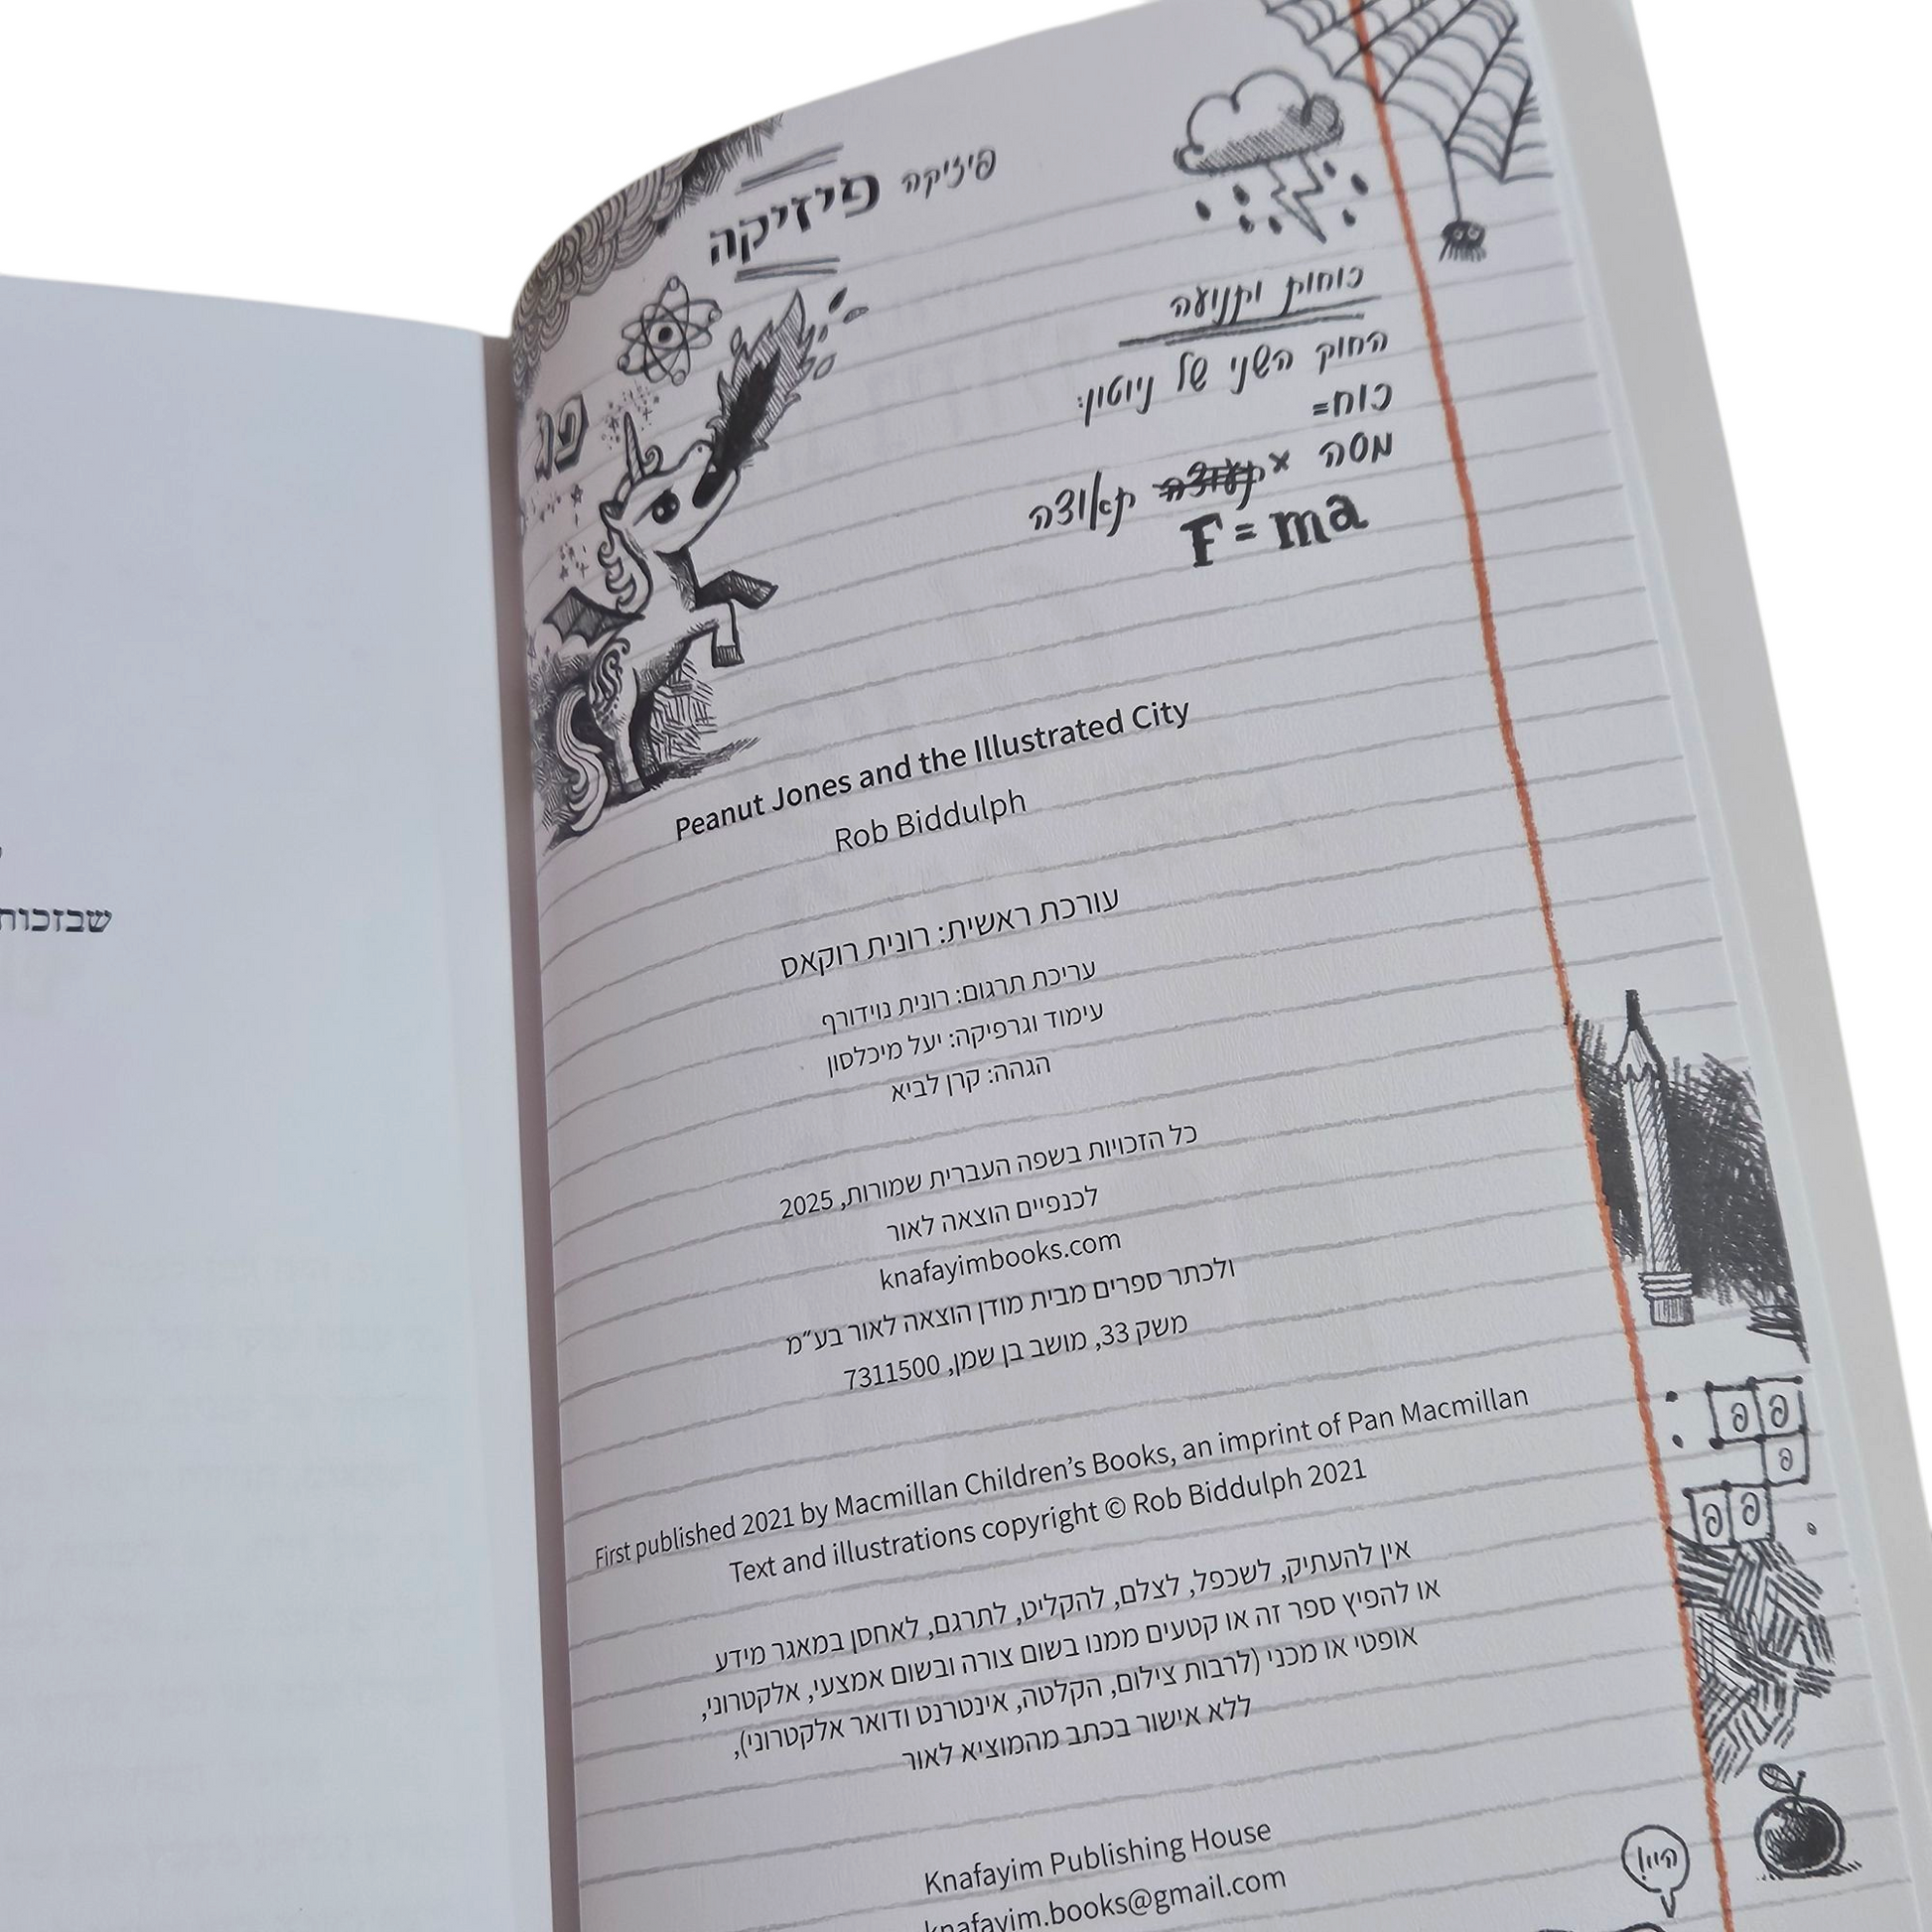 שבזכות
פיזיקה פיזיקה
כוחות ותנועה
החוק השני של ניוטון:
כוח=
מסה × תאוצה
F = ma
פג
Peanut Jones and the Illustrated City
Rob Biddulph
עורכת ראשית: רונית רוקאס
עריכת תרגום: רונית נוידורף
עימוד וגרפיקה: יעל מיכלסון
הגהה: קרן לביא
כל הזכויות בשפה העברית שמורות, 2025
לכנפיים הוצאה לאור
knafayimbooks.com
ולכתר ספרים מבית מודן הוצאה לאור בע״מ
משק 33, מושב בן שמן, 7311500
First published 2021 by Macmillan Children’s Books, an imprint of Pan Macmillan
Text and illustrations copyright © Rob Biddulph 2021
אין להעתיק, לשכפל, לצלם, להקליט, לתרגם, לאחסן במאגר מידע
או להפיץ ספר זה או קטעים ממנו בשום צורה ובשום אמצעי, אלקטרוני,
אופטי או מכני (לרבות צילום, הקלטה, אינטרנט ודואר אלקטרוני),
ללא אישור בכתב מהמוציא לאור
Knafayim Publishing House
knafayim.books@gmail.com
היי!